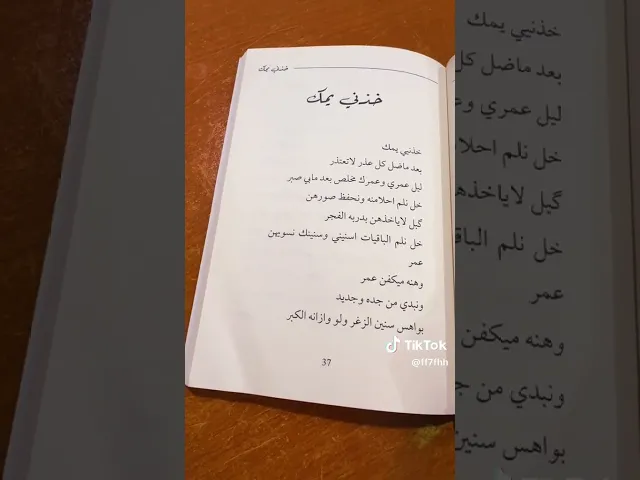 خذني يمك
خذني يمك
خذنيي يمك
بعد ماضل كل عذر لاتعتذر
ليل عمري وعمرك مخلص بعد مابي صبر
خل نلم احلامنه ونحفظ صورهن
گبل لاياخذهن بدربه الفجر
خل نلم الباقيات اسنيني وسنينك نسويهن
عمر
وهنه ميكفن عمر
ونبدي من جده وجديد
بواهس سنين الزغر ولو وازانه الكبر
37
TikTok
@ff7fhh
خذنيي يمك
بعد ماضل كل
ليل عمري وع
خل نلم احلام
گبل لاياخذه
خل نلم الباق
عمر
وهنه ميكفن
ونبدي من ج
بواهس سنين